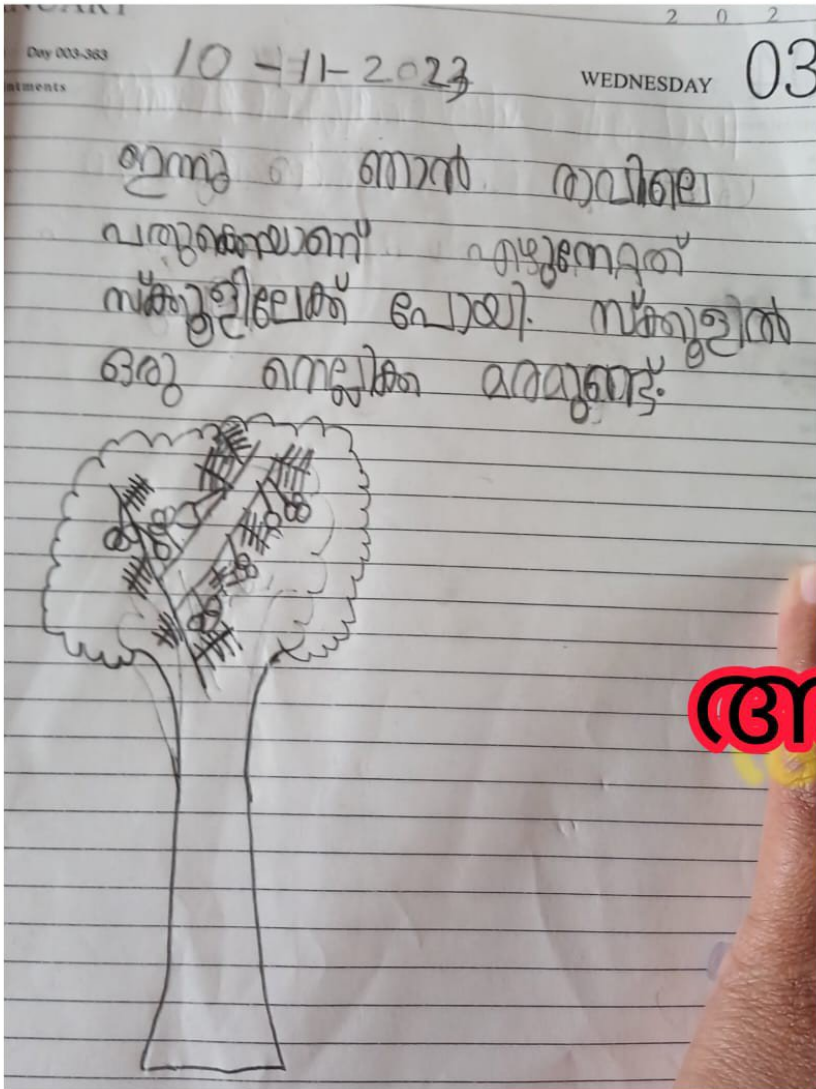 2 0 2
Day 003-363
10-11-2023
WEDNESDAY 03
ഇന്നു ഞാൻ രാവിലെ
എഴുന്നേറ്റത്
സ്കൂളിലേക്ക് പോയി. സ്കൂളിൽ
ഒരു നെല്ലിക്ക മരമുണ്ട്.